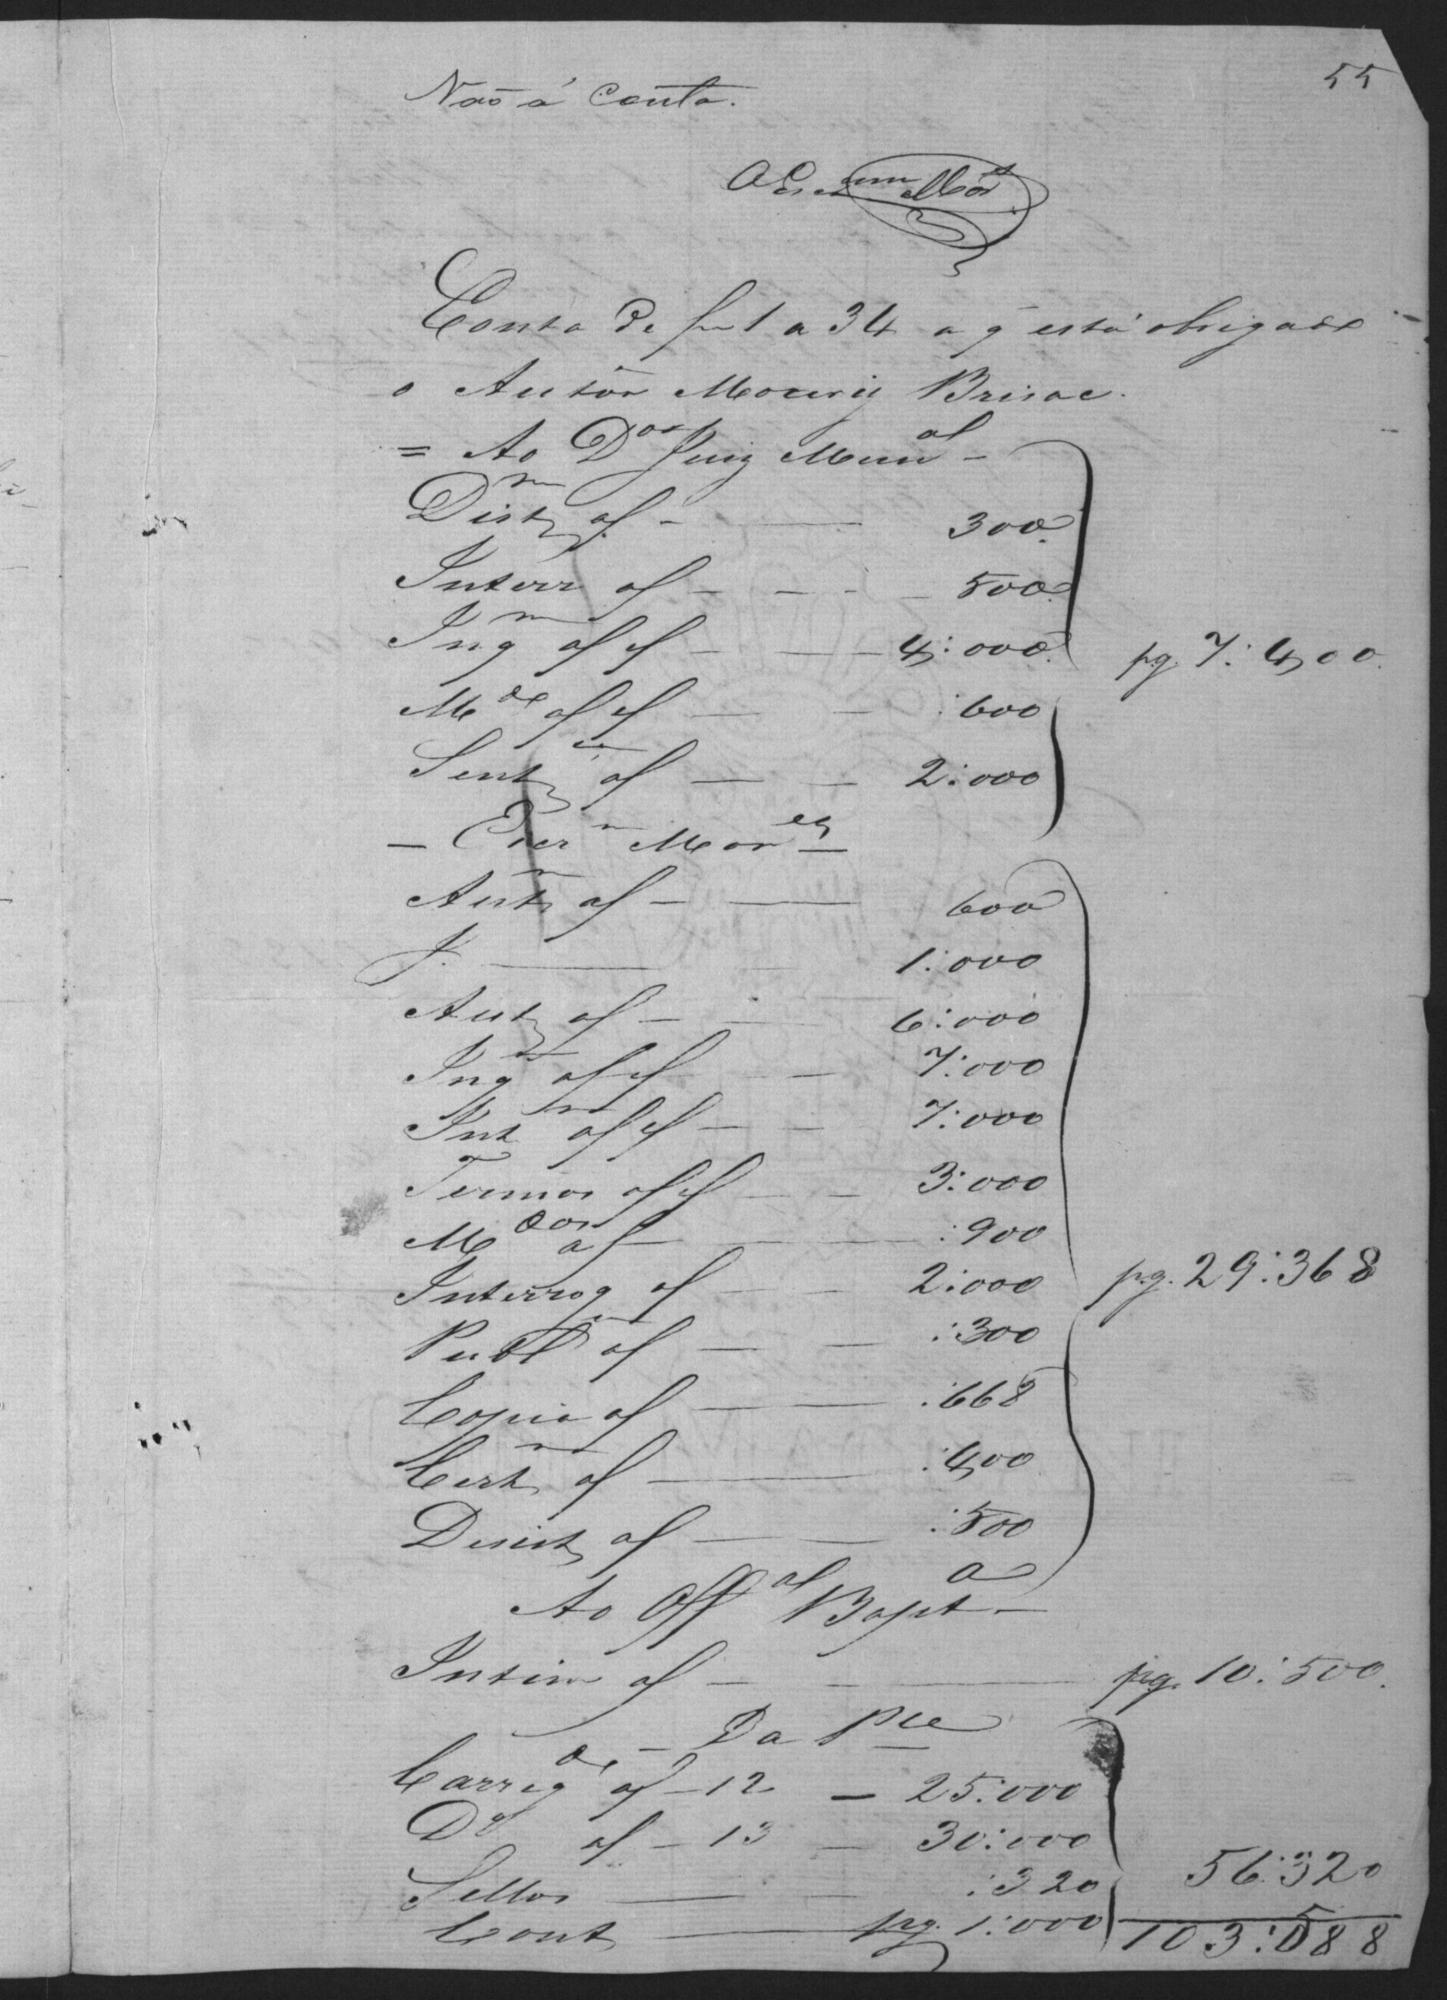 55
Vão á conta.
Conta de f 1 a 34 a q está obrigado
o Autôr Mouriz Brisac.
= Ao Dor Juiz Munal -
Distm af - 300
Interr af - 500
Inqm aff - 4:000
pg. 7:400
Mde aff - :600
Sentça af - 2:000
- Escrm Moraes -
Autm af - 600
J. - 1:000
Aut af - 6:000
Inq aff - 7:000
Intm aff - 7:000
Termos aff - 3:000
Mdos af - :900
Interrog af - 2:000
pg. 29:368
Publm af - :300
Copia af - :668
Certm af - :400
Desist af - :500
Ao Offal Bapta -
Intim af - pg. 10:500.
- Da Pte
Carregde af - 12 - 25:000
Do af - 13 - 30:000
Sellos - :320
56:320
Cont - pg. 1:000
103:588